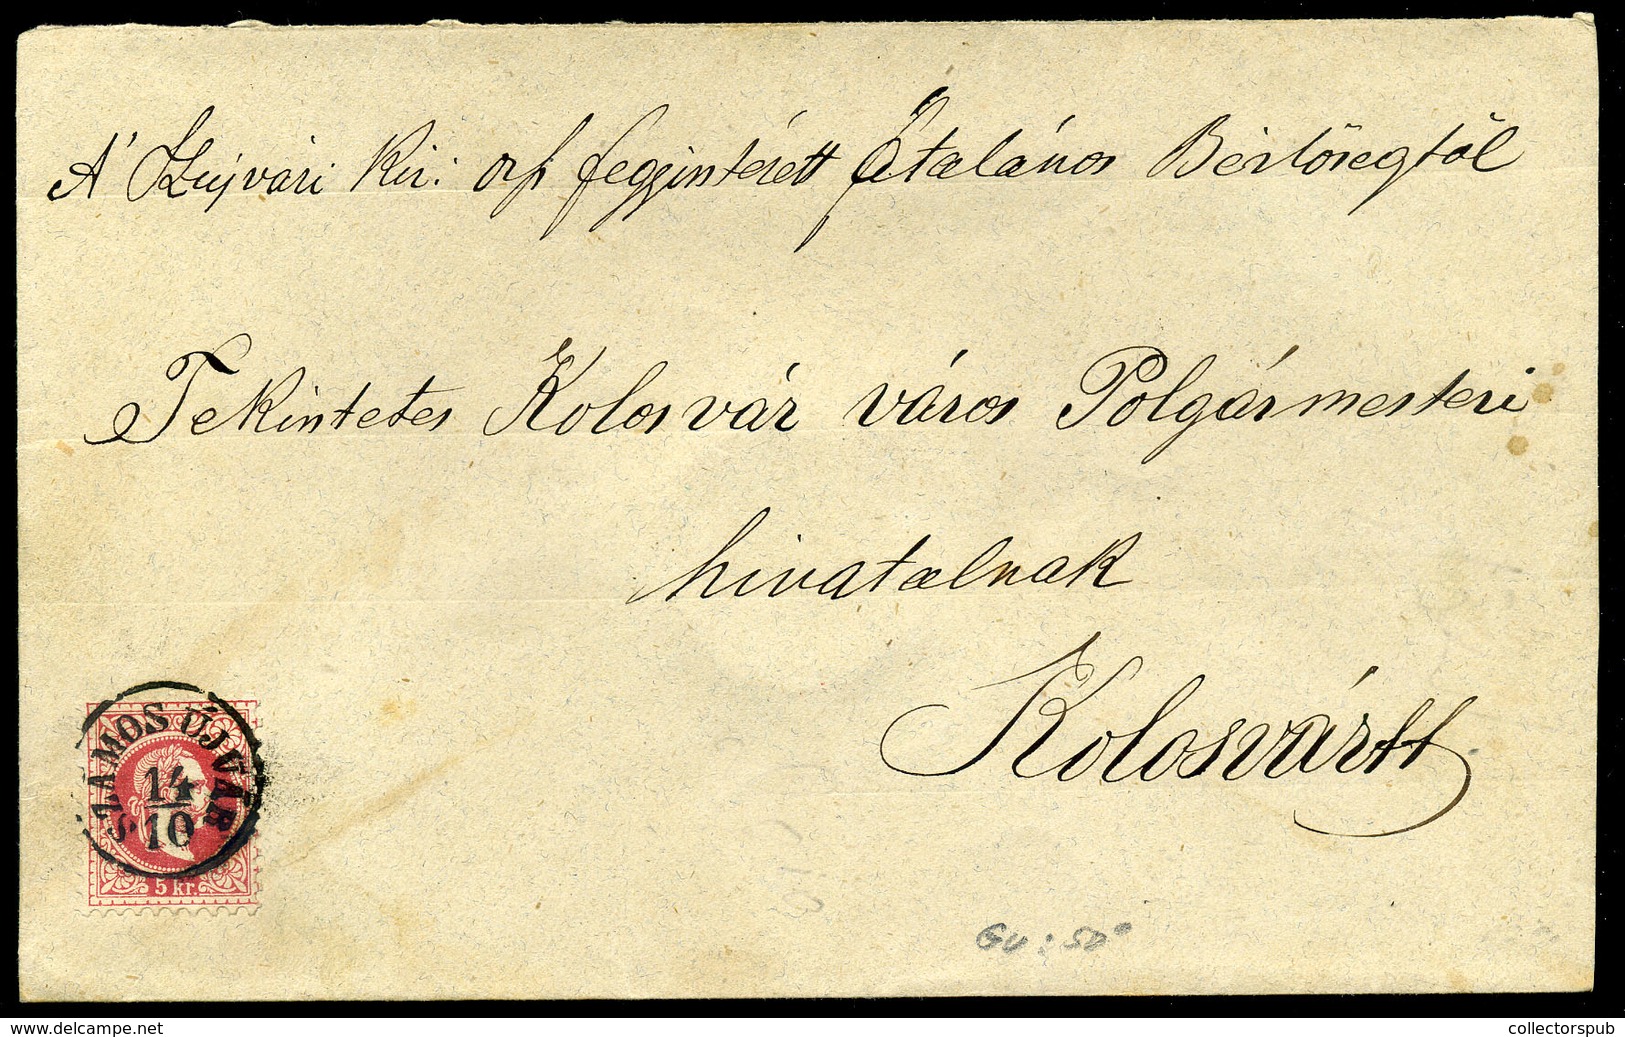 A' Szujvári kir: orsz fegyintézett Átalános Bérlőségtől
Tekintetes Kolosvár város Polgármesteri
hivatalnak
Kolosvártt
SZAMOS ÚJVÁR
14
10
5 kr.
www.delcampe.net
collectorspub